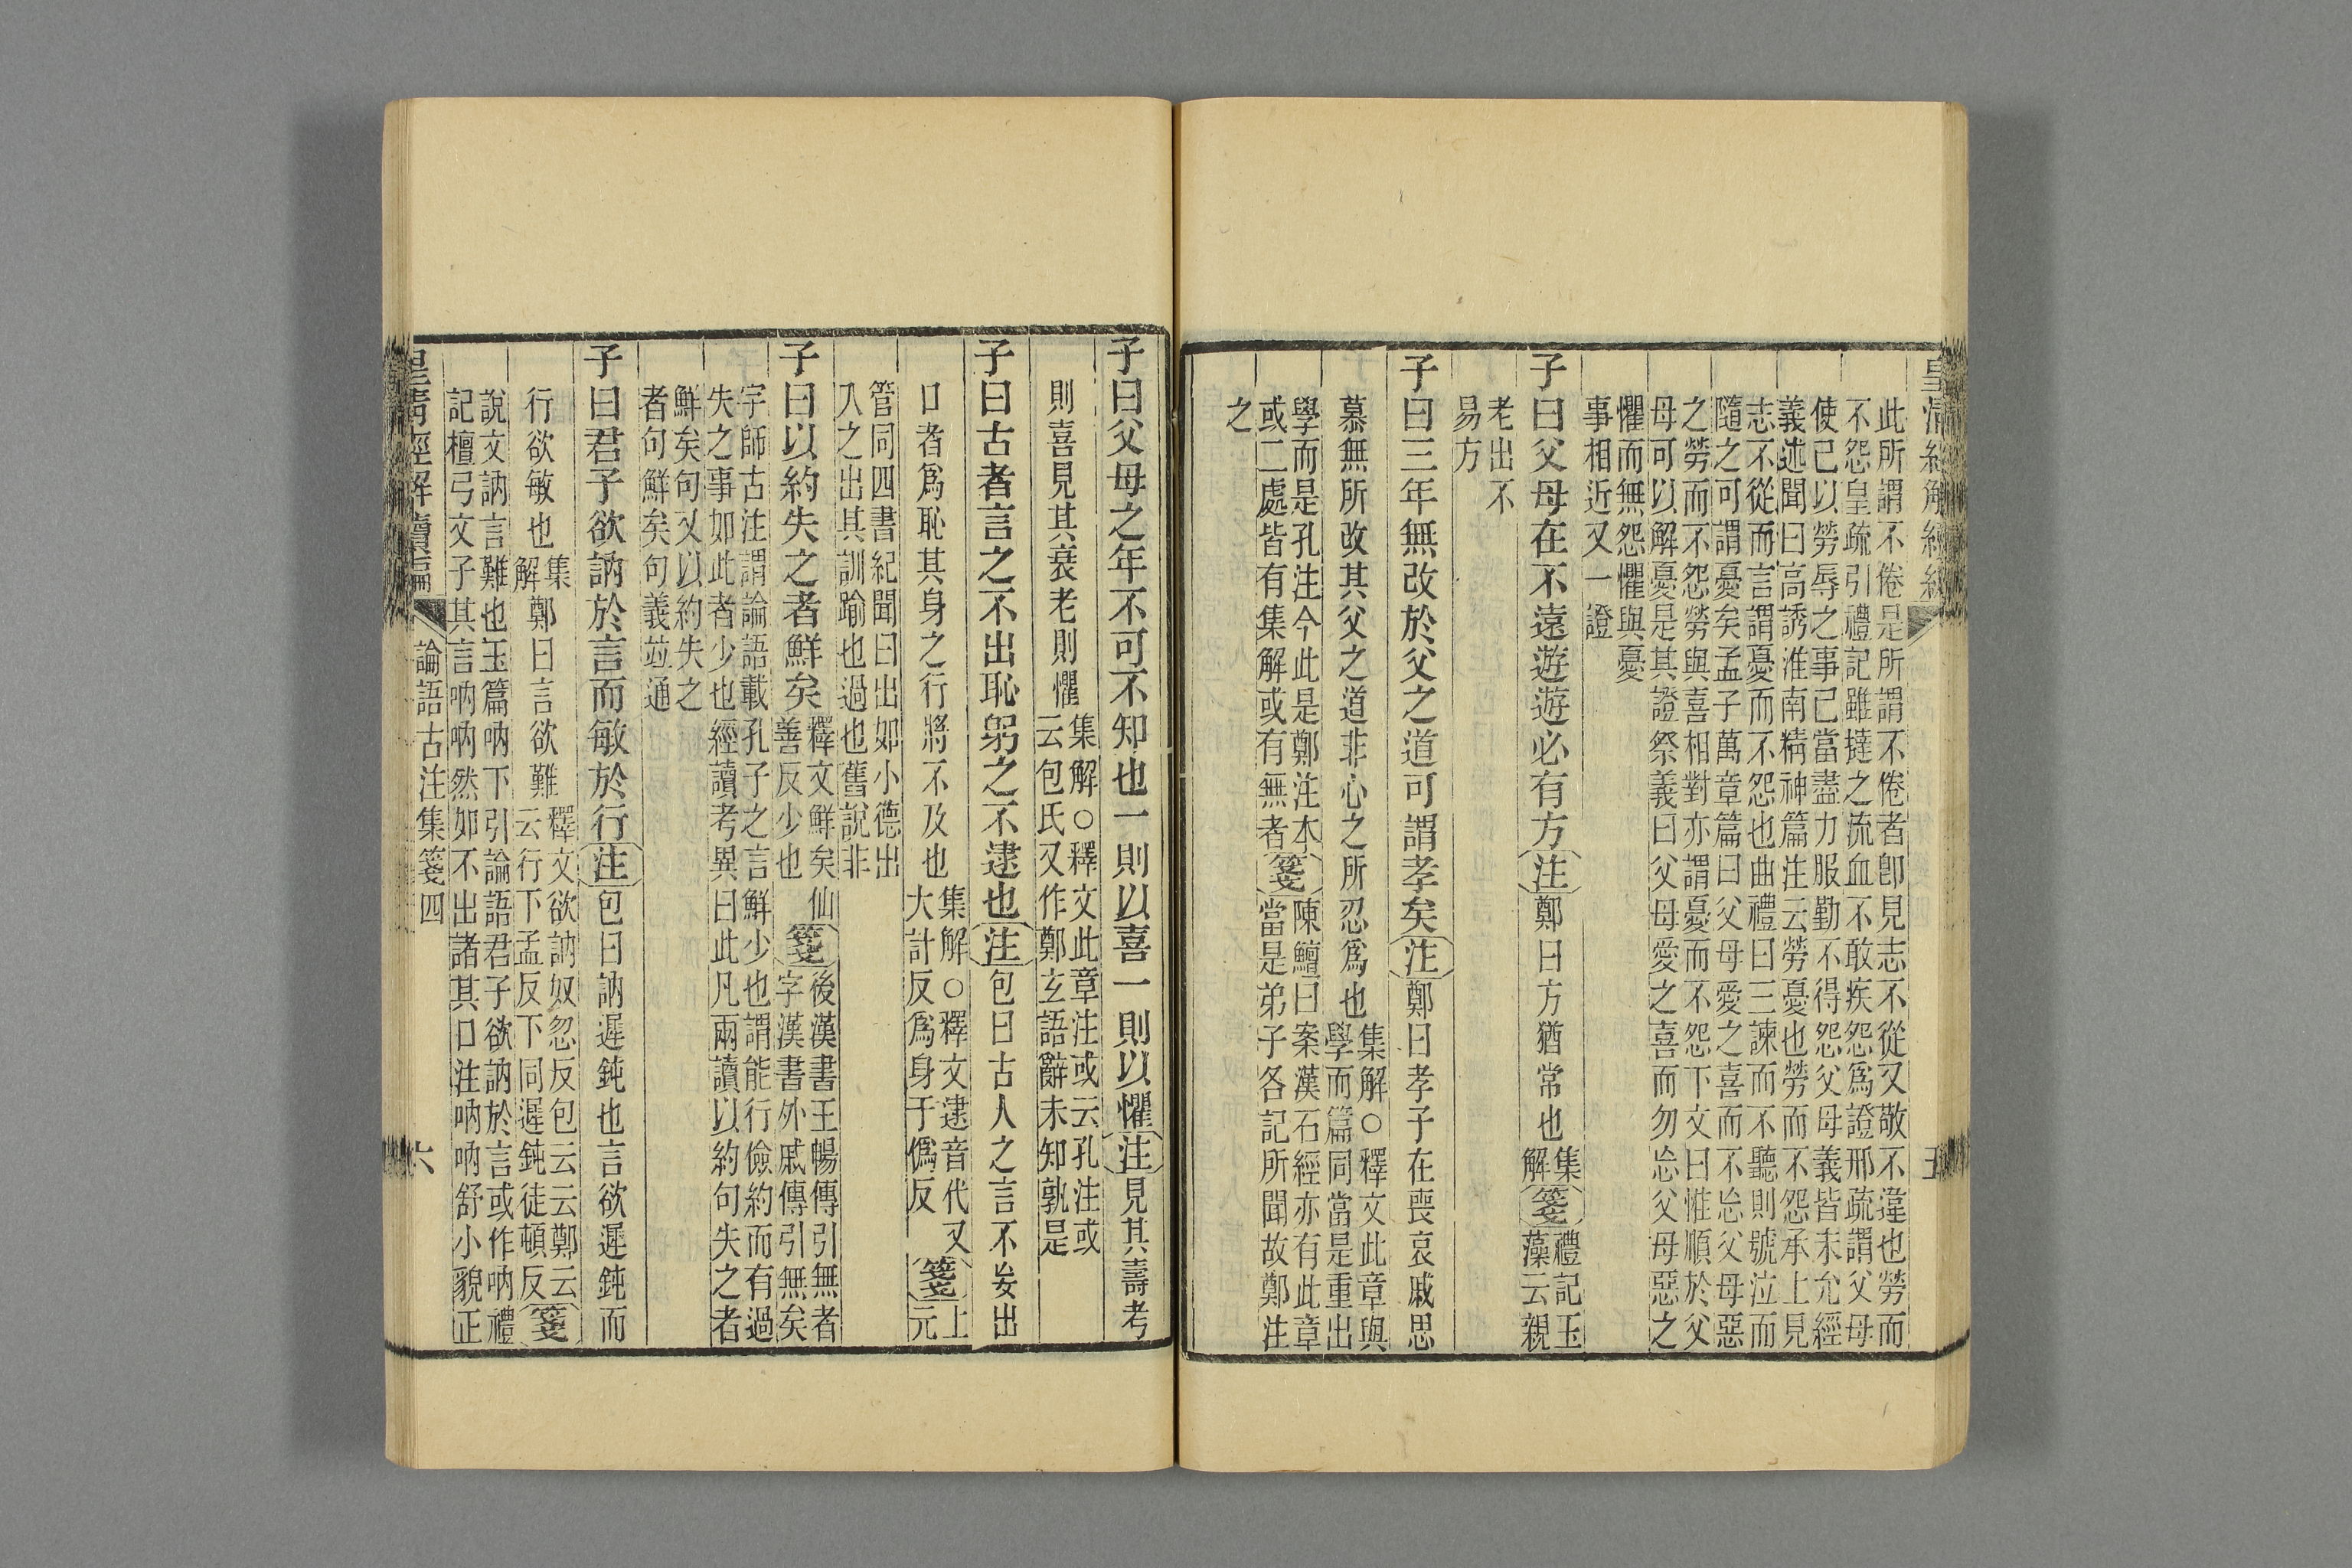 此所謂不倦是所謂不倦者卽見志不從又敬不違也勞而
不怨皇疏引禮記雖撻之流血不敢疾怨爲證邢疏謂父母
使己以勞辱之事己當盡力服勤不得怨父母義皆未允經
義述聞曰高誘淮南精神篇注云勞憂也勞而不怨承上見
志不從而言謂憂而不怨也曲禮曰三諫而不聽則號泣而
隨之可謂憂矣孟子萬章篇曰父母愛之喜而不忘父母惡
之勞而不怨勞與喜相對亦謂憂而不怨下文曰惟順於父
母可以解憂是其證祭義曰父母愛之喜而勿忘父母惡之
懼而無怨懼與憂
事相近又一證
子曰父母在不遠遊遊必有方注鄭曰方猶常也集解箋禮記玉藻云親
老出不
易方
子曰三年無改於父之道可謂孝矣注鄭曰孝子在喪哀戚思
慕無所改其父之道非心之所忍爲也集解○釋文此章與學而篇同當是重出
學而是孔注今此是鄭注本
或二處皆有集解或有無者箋陳鱣曰案漢石經亦有此章當是弟子各記所聞故鄭注
之
五
子曰父母之年不可不知也一則以喜一則以懼注見其壽考
則喜見其衰老則懼集解○釋文此章注或云孔注或云包氏又作鄭玄語辭未知孰是
子曰古者言之不出恥躬之不逮也注包曰古人之言不妄出
口者爲恥其身之行將不及也集解○釋文逮音代又大計反爲身于僞反箋上元
管同四書紀聞曰出如小德出
入之出其訓踰也過也舊說非
子曰以約失之者鮮矣釋文鮮矣仙善反少也箋後漢書王暢傳引無者字漢書外戚傳引無矣
字師古注謂論語載孔子之言鮮少也謂能行儉約而有過
失之事如此者少也經讀考異曰此凡兩讀以約句失之者
鮮矣句又以約失之
者句鮮矣句義竝通
子曰君子欲訥於言而敏於行注包曰訥遲鈍也言欲遲鈍而
行欲敏也集解鄭曰言欲難釋文欲訥奴忽反包云云鄭云云行下孟反下同遲鈍徒頓反箋
說文訥言難也玉篇吶下引論語君子欲訥於言或作吶禮
記檀弓文子其言吶吶然如不出諸其口注吶吶舒小貌正
皇清經解續編 論語古注集箋四 六